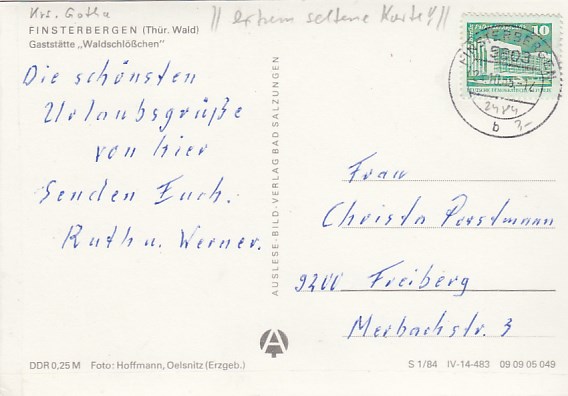 Krs. Gotha
|| extrem seltene Karte!! ||
FINSTERBERGEN (Thür. Wald)
Gaststätte „Waldschlößchen"
Die schönsten
Urlaubsgrüße
von hier
Senden Euch.
Ruth u. Werner.
AUSLESE-BILD-VERLAG BAD SALZUNGEN
10
DEUTSCHE DEMOKRATISCHE REPUBLIK
FINSTERBERGEN
5803
b 3,-
Frau
Christa Porstmann
9200 Freiberg
Merbachstr. 3
DDR 0,25 M Foto: Hoffmann, Oelsnitz (Erzgeb.)
S 1/84 IV-14-483 09 09 05 049